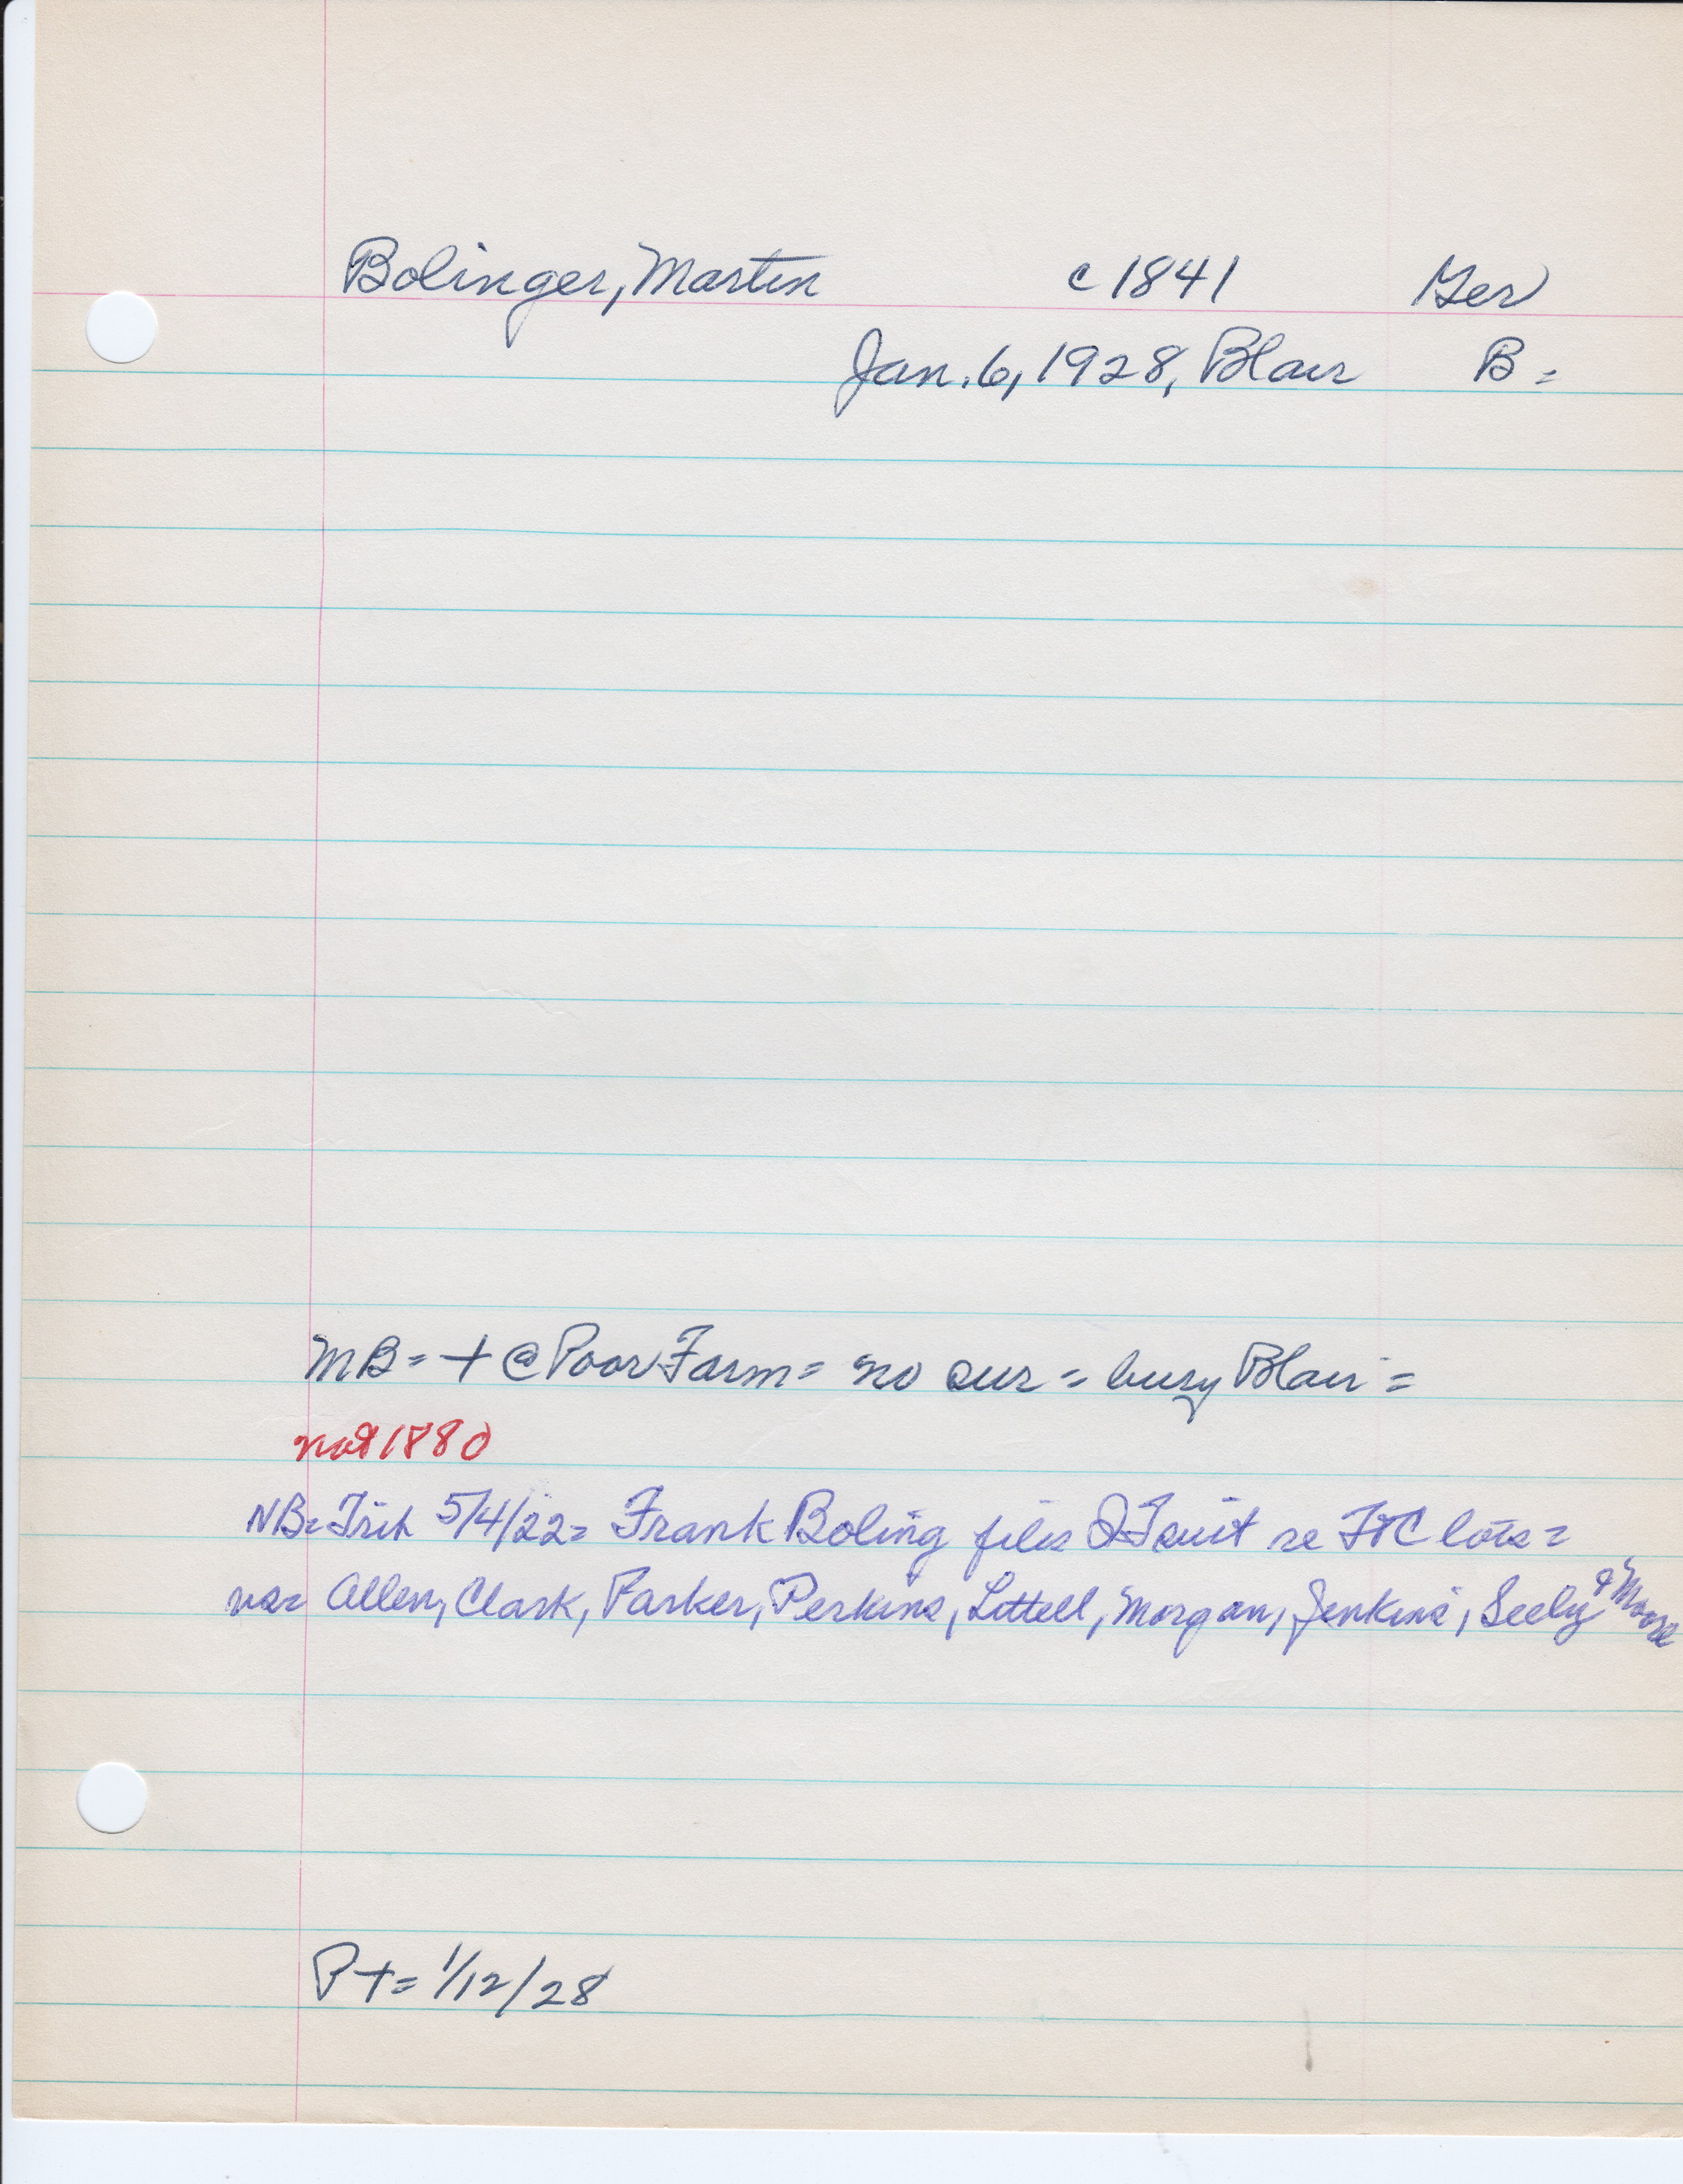 Bolinger, Martin c1841 Ger
Jan. 6, 1928, Blair B =
MB = + @ Poor Farm = no sur = bury Blair =
not 1880
NB = Trib 5/4/22 = Frank Boling files QT suit re FtC lots =
vs = Allen, Clark, Parker, Perkins, Littell, Morgan, Jenkins, Seely & Moore
Pt = 1/12/28